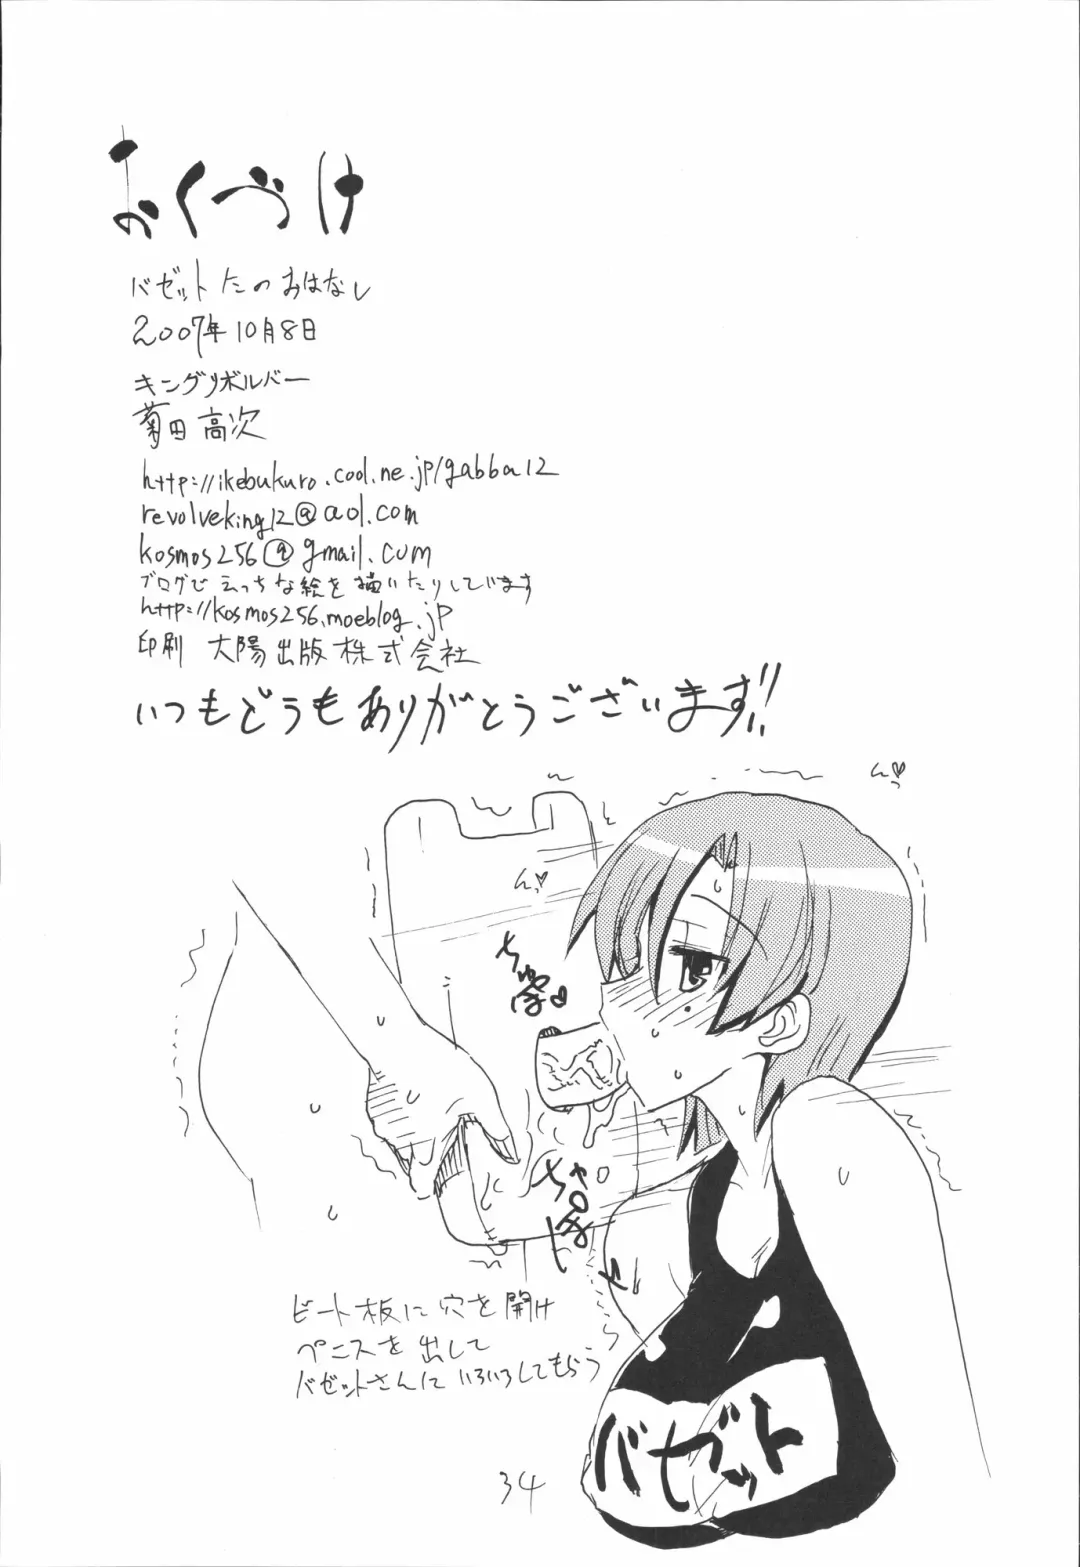 おくづけ
バゼットたのおはなし
2007年10月8日
キングリボルバー
菊田高次
http://ikebukuro.cool.ne.jp/gabba12
revolveking12@aol.com
kosmos256@gmail.com
ブログでえっちな絵を描いたりしています
http://kosmos256.moeblog.jp
印刷 大陽出版株式会社
いつもどうもありがとうございます!!
んっ♡
んっ♡
ちゅぽ♡
ちゃぽ
ビート板に穴を開け
ペニスを出して
バゼットさんにいろいろしてもらう
バゼット
34